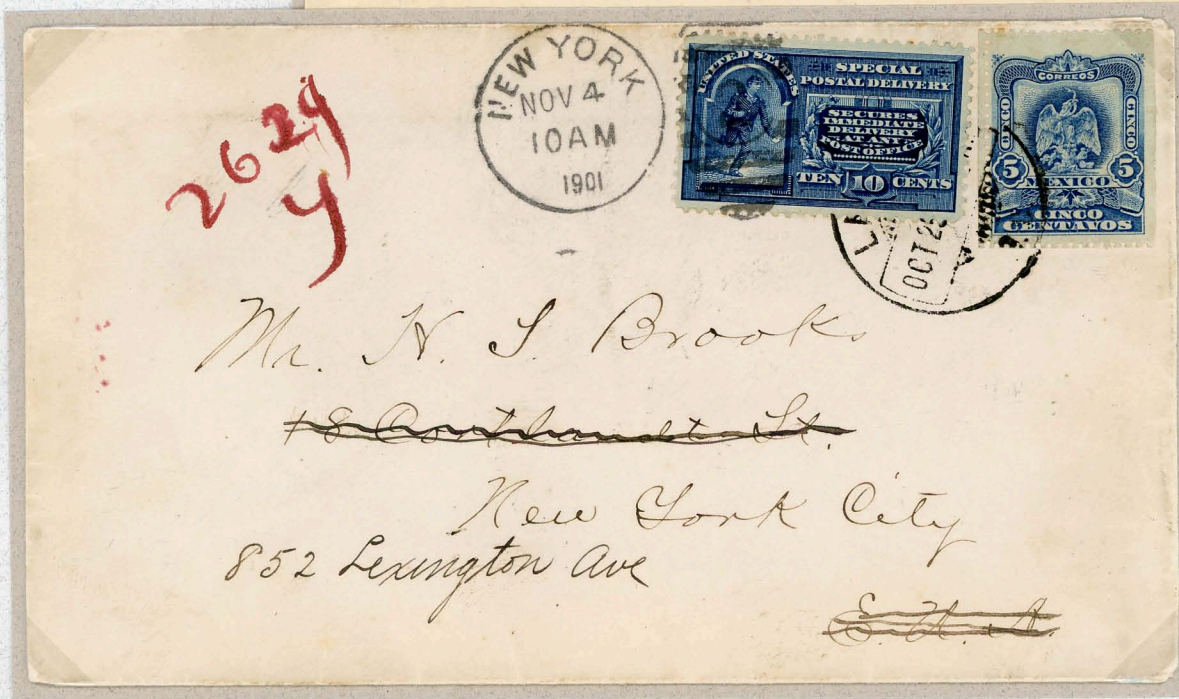 NEW YORK
NOV 4
10 AM
1901
UNITED STATES
SPECIAL
POSTAL DELIVERY
SECURES
IMMEDIATE
DELIVERY
AT ANY
POST OFFICE
TEN 10 CENTS
CORREOS
CINCO CINCO
5 MEXICO 5
CINCO
CENTAVOS
OCT
2629
Y
Mr. H. S. Brooks
18 Cortlandt St.
New York City
852 Lexington Ave
E. U. A.